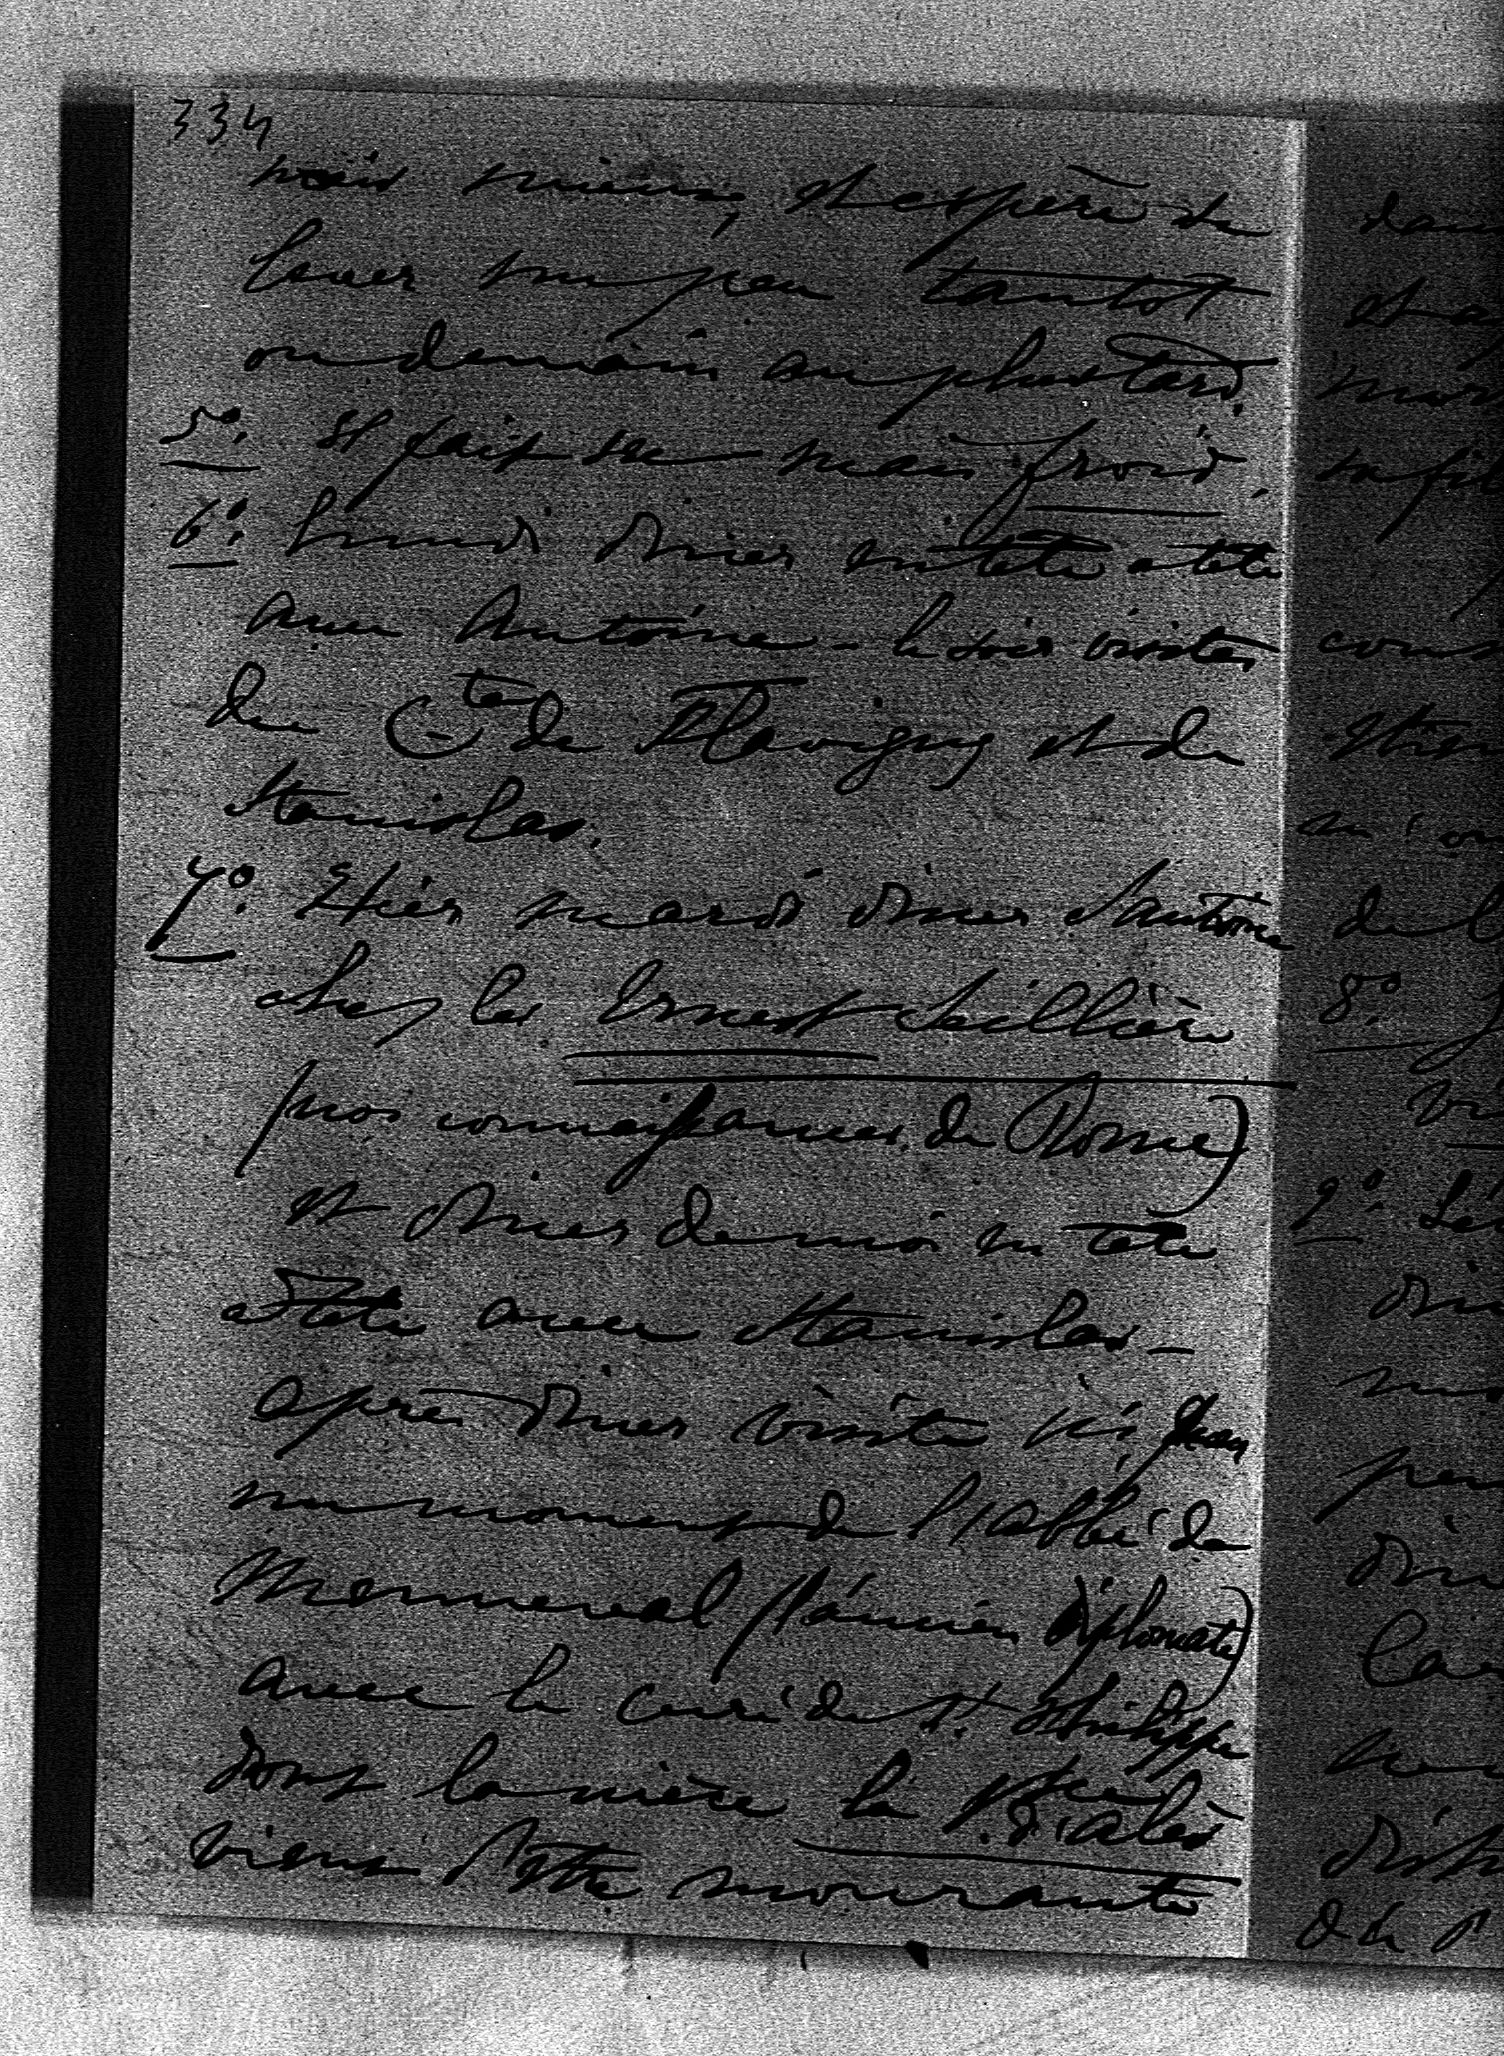 334
vais mieux, et espère me
lever un peu tantôt
ou demain au plus tard.
5º. Il fait sec mais froid.
6º. Lundi diner en tête a tête
avec Antoine - le soir visites
du Cte de Flavigny et de
Stanislas.
7º. Hier mardi diner d'Antoine
chez les Ernest Seillière
(nos connaissances de Rome)
et diner de moi en tête
à tête avec Stanislas -
après diner visite ici
un moment de l'abbé de
Monneval (l'ancien diplomate)
avec le curé de St. Philippe
dont la mère la
d'Alès
vient d'être mourante
8º.
9º.